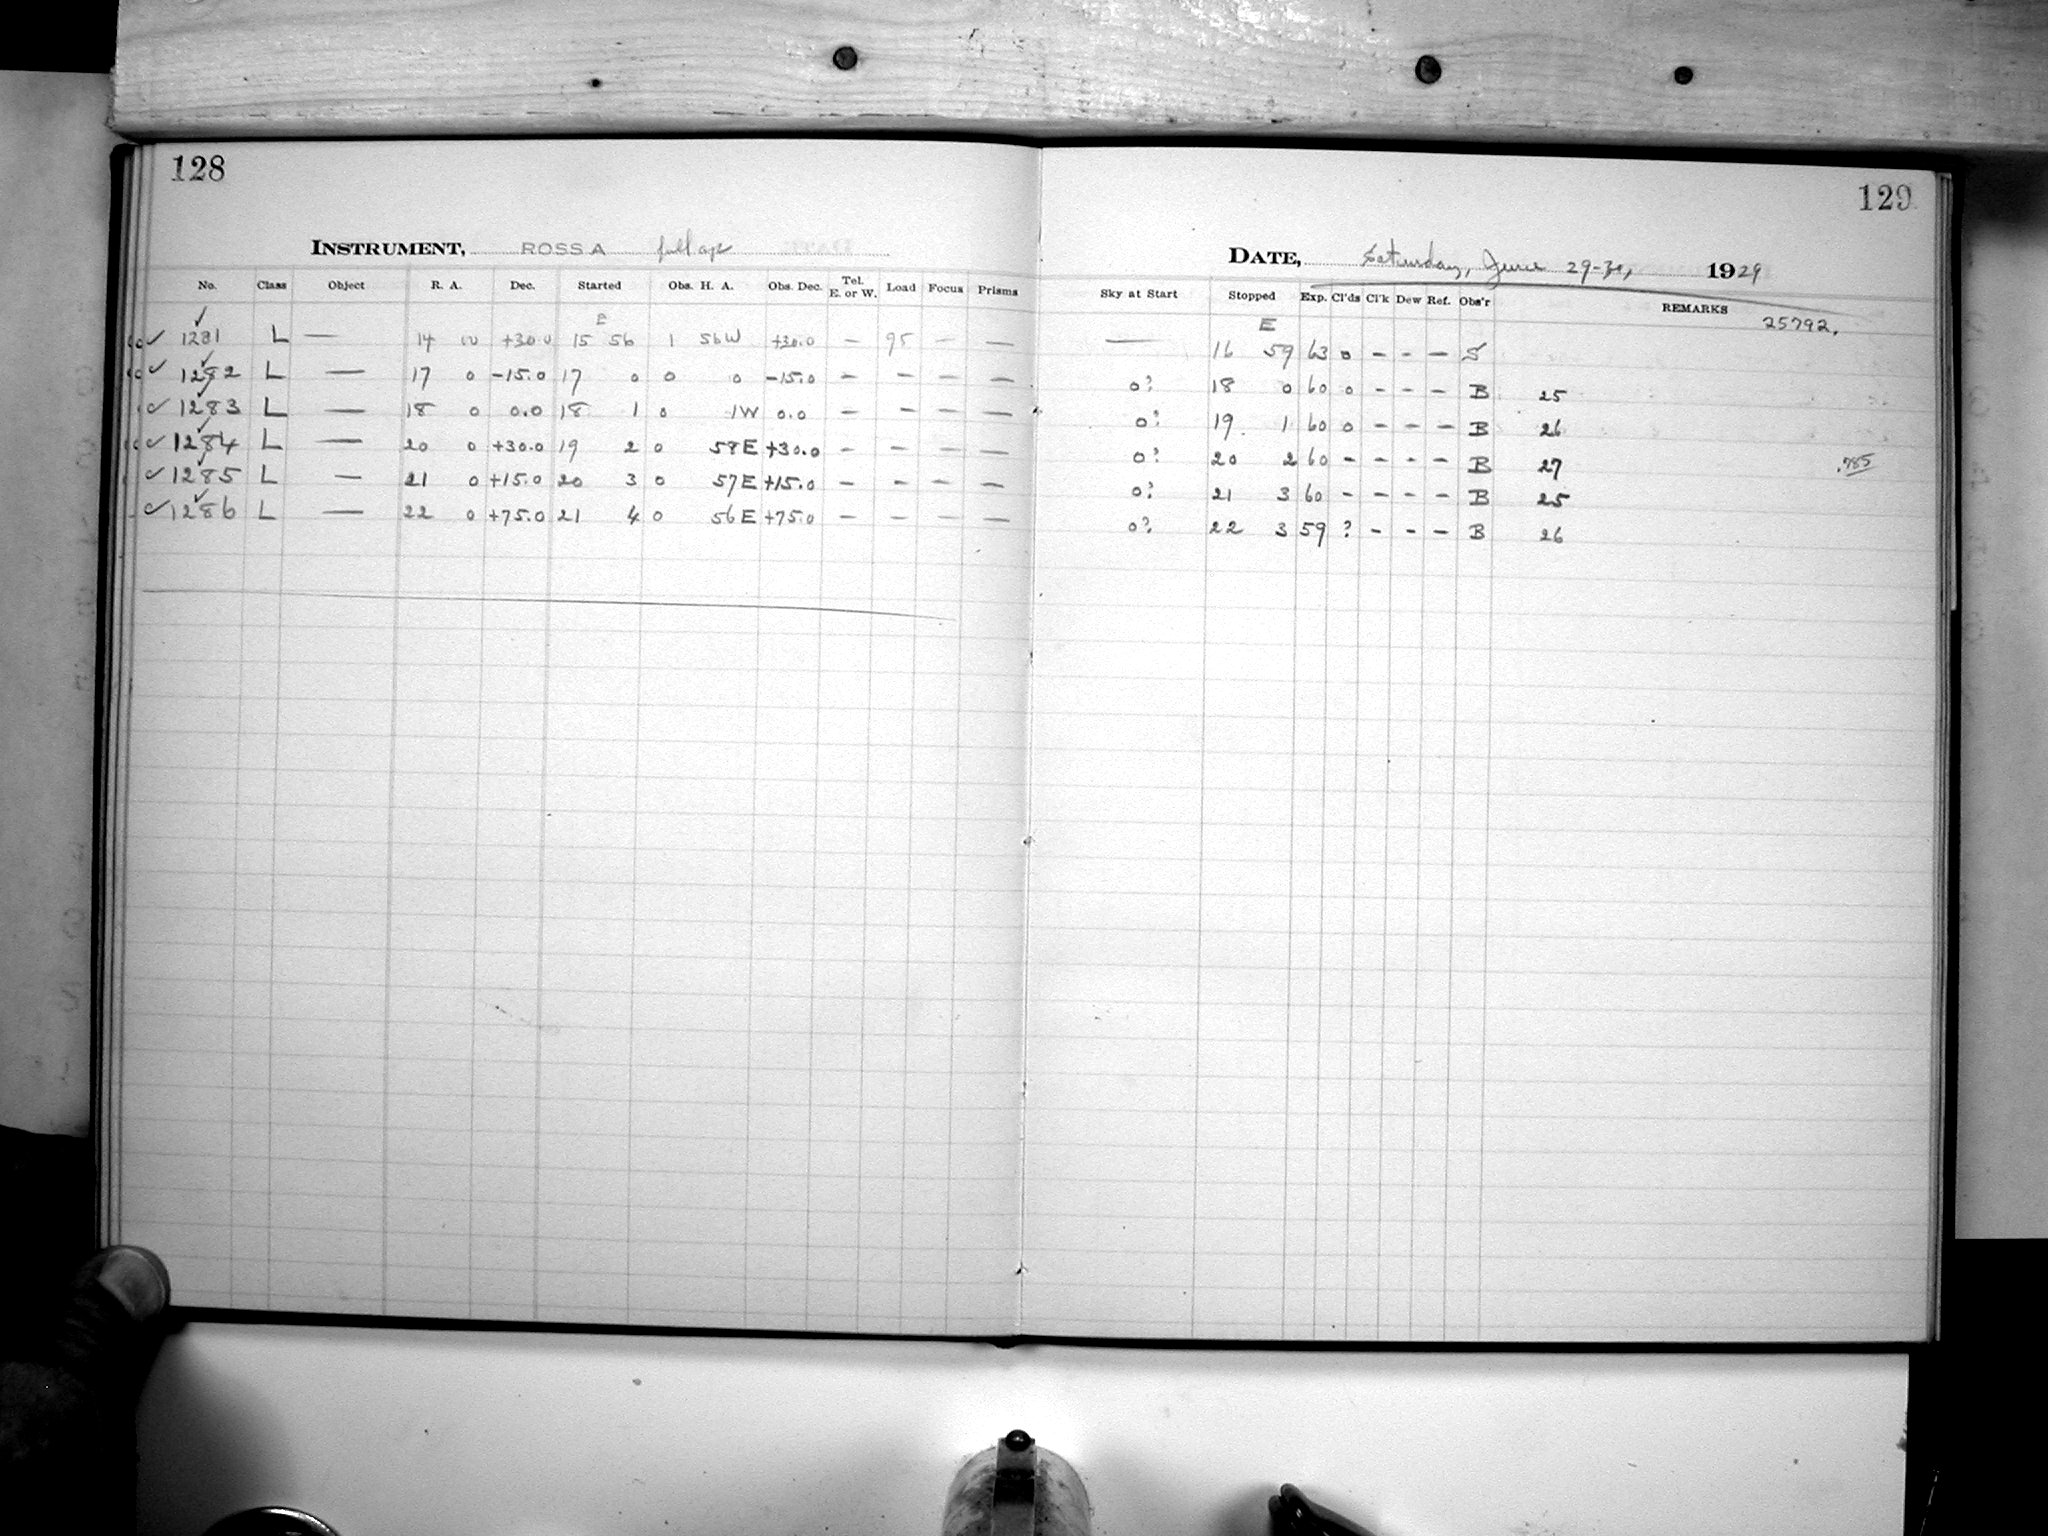 128
129
INSTRUMENT, ROSS A full ap
DATE, Saturday, June 29-30, 1929
No. Class Object R. A. Dec. Started Obs. H. A. Obs. Dec. Tel. E. or W. Load Focus Prisms Sky at Start Stopped Exp. Cl'ds Cl'k Dew Ref. Obs'r REMARKS
E E 25792.
✓ 1281 L — 14 0 +30.0 15 56 1 56W +30.0 — 95 — — — 16 59 63 0 – – — S
✓ 1282 L — 17 0 -15.0 17 0 0 0 -15.0 – – – — 0? 18 0 60 0 – – – B 25
✓ 1283 L — 18 0 0.0 18 1 0 1W 0.0 – – – — 0? 19 1 60 0 – – – B 26
✓ 1284 L — 20 0 +30.0 19 2 0 58E +30.0 – – – — 0? 20 2 60 – – – – B 27 .785
✓ 1285 L — 21 0 +15.0 20 3 0 57E +15.0 – – – — 0? 21 3 60 – – – – B 25
✓ 1286 L — 22 0 +75.0 21 4 0 56E +75.0 – – – — 0? 22 3 59 ? – – – B 26